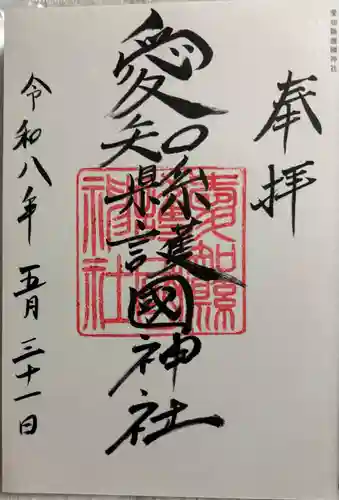 愛知縣護國神社
奉拝
愛知縣護國神社
愛知縣護國神社
令和八年 五月三十一日